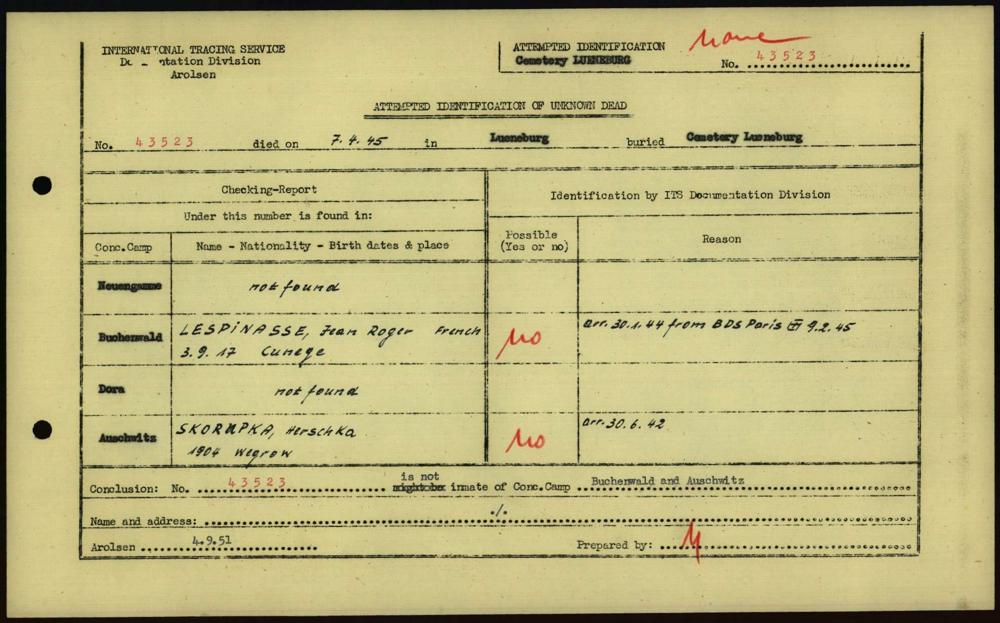 INTERNATIONAL TRACING SERVICE
Documentation Division
Arolsen
None
ATTEMPTED IDENTIFICATION
Cemetery LUENEBURG
No. 43523
ATTEMPTED IDENTIFICATION OF UNKNOWN DEAD
No. 43523 died on 7.4.45 in Lueneburg buried Cemetery Lueneburg
Checking-Report
Under this number is found in:
Identification by ITS Documentation Division
Conc.Camp Name - Nationality - Birth dates & place
Possible
(Yes or no)
Reason
Neuengamme not found
Buchenwald LESPINASSE, Jean Roger French
3.9.17 Cunege
no
arr. 30.1.44 from BDS Paris III 9.2.45
Dora not found
Auschwitz SKORUPKA, Herschka
1904 Wegrow
no
arr. 30.6.42
Conclusion: No. 43523 is not inmate of Conc.Camp Buchenwald and Auschwitz
Name and address: ./.
Arolsen 4.9.51 Prepared by: